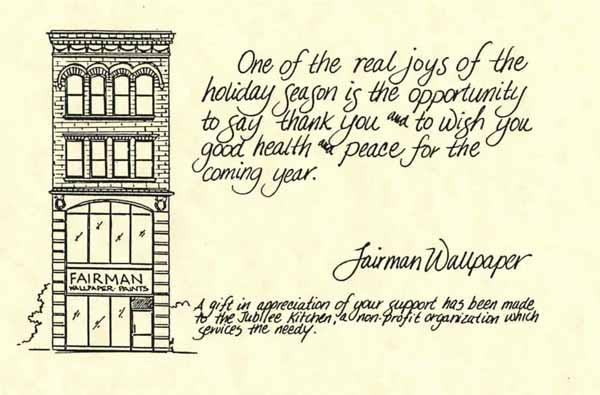 One of the real joys of the
holiday season is the opportunity
to say thank you and to wish you
good health and peace for the
coming year.
Fairman Wallpaper
FAIRMAN
WALLPAPER · PAINTS
A gift in appreciation of your support has been made
to the Jubilee Kitchen, a non-profit organization which
services the needy.